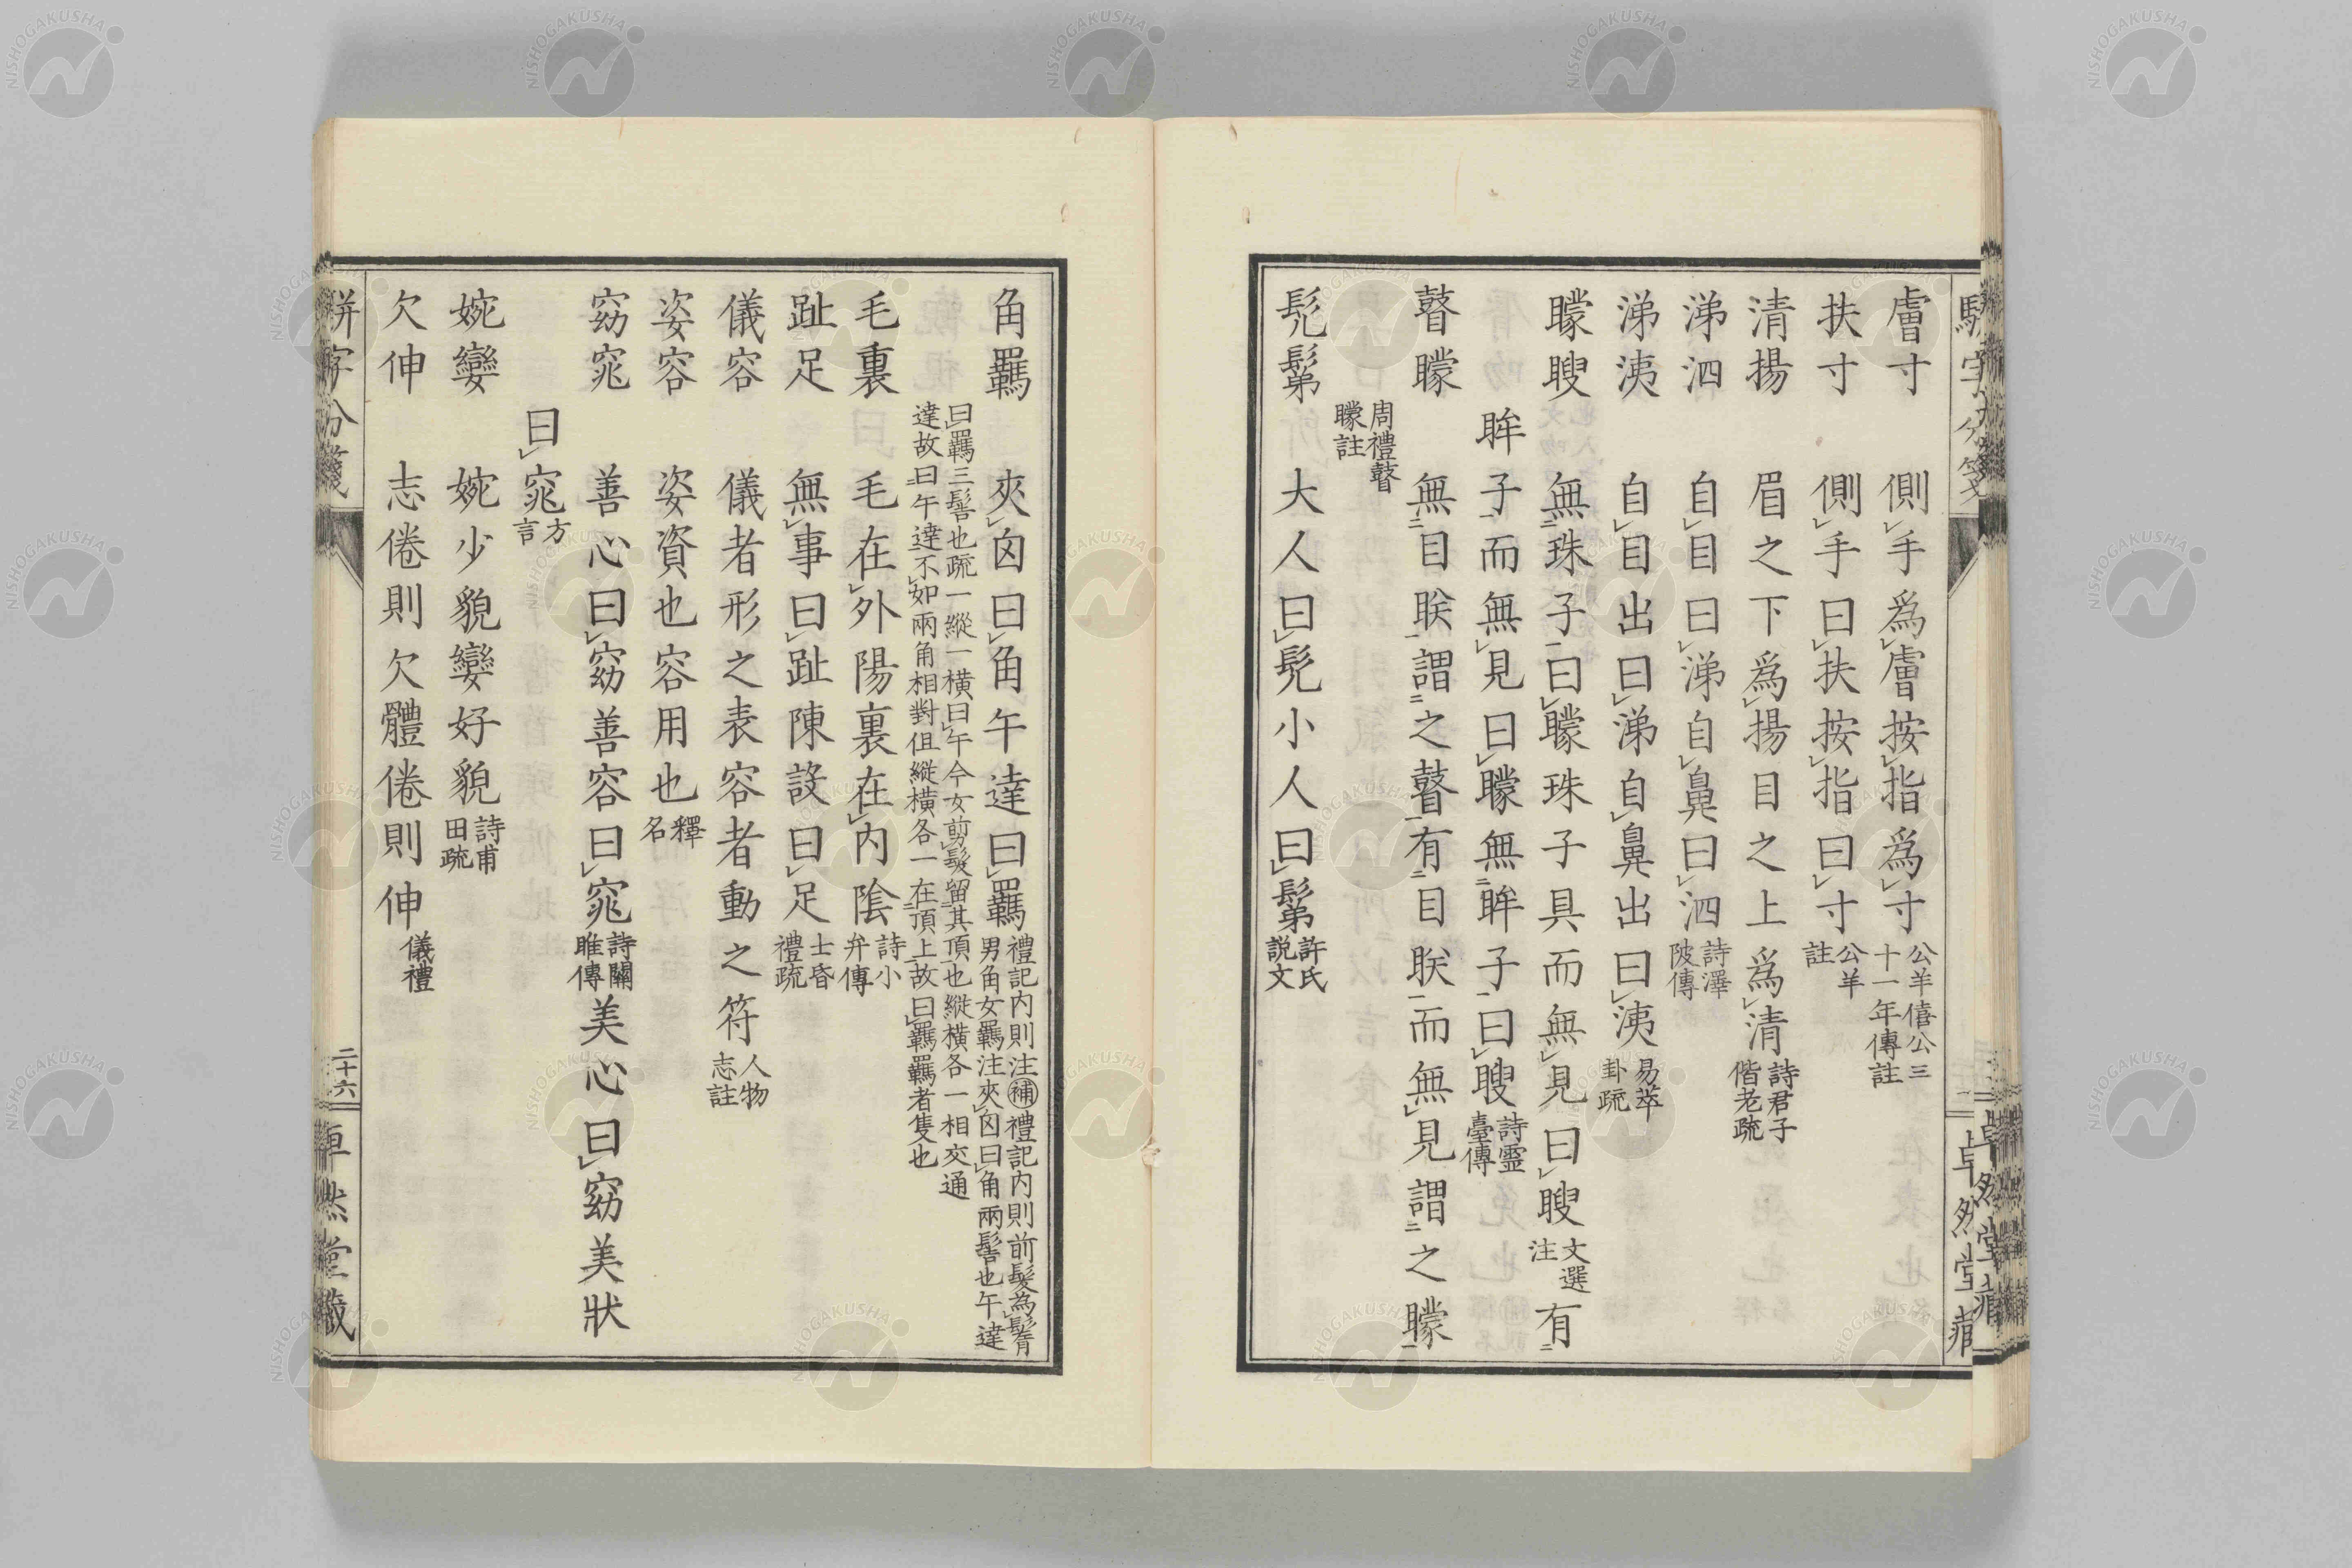 膚寸 側手爲膚按指爲寸公羊僖公三十一年傳註
扶寸 側手曰扶按指曰寸公羊註
清揚 眉之下爲揚目之上爲清詩君子偕老疏
涕泗 自目曰涕自鼻曰泗詩澤陂傳
涕洟 自目出曰涕自鼻出曰洟易萃卦疏
矇瞍 無珠子曰矇珠子具而無見曰瞍文選注有
眸子而無見曰矇無眸子曰瞍詩靈臺傳
瞽矇 無目眹謂之瞽有目眹而無見謂之矇
周禮瞽矇註
髡鬀 大人曰髡小人曰鬀許氏説文
角羈 夾囟曰角午達曰羈禮記内則注補禮記内則前髮為鬌男角女羈注夾囟曰角兩髻也午達
曰羈三髻也疏一縱一横曰午今女剪髮留其頂也縱横各一相交通達故曰午達不如兩角相對但縱横各一在頂上故曰羈羈者隻也
毛裏 毛在外陽裏在内陰詩小弁傳
趾足 無事曰趾陳設曰足士昏禮疏
儀容 儀者形之表容者動之符人物志註
姿容 姿資也容用也釋名
窈窕 善心曰窈善容曰窕詩關雎傳美心曰窈美狀
曰窕方言
婉孌 婉少貌孌好貌詩甫田疏
欠伸 志倦則欠體倦則伸儀禮
駢字分箋
二十六
卓然堂藏
NISHOGAKUSHA